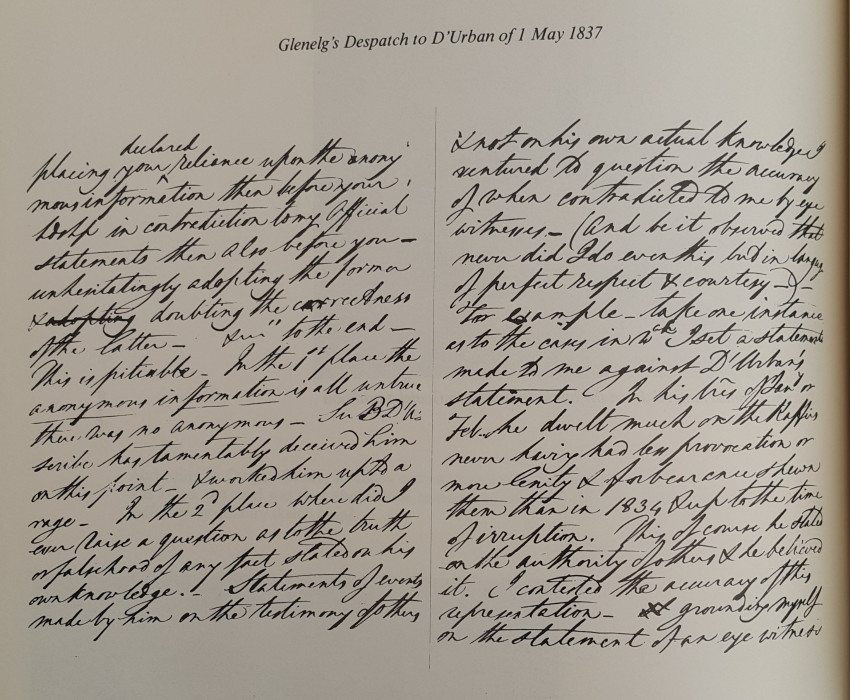 Glenelg's Despatch to D'Urban of 1 May 1837
declared
placing your reliance upon the anony
mous information then before your
Ldshp in contradiction to my Official
statements then also before you —
unhesitatingly adopting the former
& adopting doubting the correctness
of the latter — &cc" to the end —
This is pitiable — In the 1st place the
anonymous information is all untrue
there was no anonymous — Sir B D'U's
scribe has lamentably deceived him
on this point — & worked him up to a
rage — In the 2d place where did I
ever raise a question as to the truth
or falsehood of any fact stated on his
own knowledge. — Statements of events
made by him on the testimony of others
& not on his own actual knowledge I
ventured to question the accuracy
of when contradicted to me by eye
witnesses — (And be it observed that
never did I do even this but in langu
of perfect respect & courtesy —) —
For example — take one instance
as to the cases in wch I set a statement
made to me against D'Urban's
statement. In his of Jany or
Feb. he dwelt much on the Kaffirs
never having had less provocation or
more lenity & forbearance shewn
them than in 1834 & up to the time
of irruption. This of course he stated
on the authority of others & he believed
it. I contested the accuracy of this
representation — grounding myself
on the statement of an eye witness